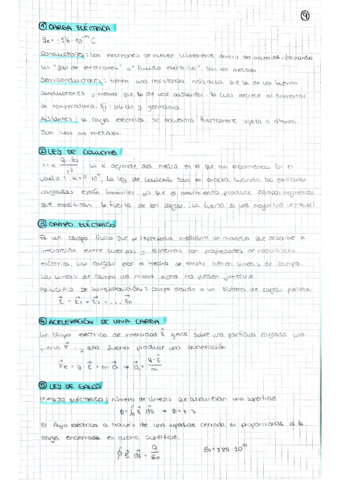 ① CARGA ELÉCTRICA
Conductores: los electrones se mueven libremente dentro del material, formando
un "gas de electrones" o "fluido eléctrico". Son los metales.
Semiconductores: tienen una resistencia más alta que la de los buenos
conductores y menor que la de los aislantes, la cual decrece al aumentar
la temperatura. Ej: silicio y germanio.
Aislantes: la carga eléctrica se encuentra fuertemente sujeta a átomos.
Son los no metales.
② LEY DE COULOMB
La K depende del medio en el que nos encontremos. En el
vacío: La ley de Coulomb solo es cuando las partículas
cargadas están inmóviles, ya que el movimiento produce campos magnéticos
que modifican la fuerza de las cargas. (La fuerza es una magnitud vectorial)
③ CAMPO ELÉCTRICO
Es un campo físico que se representa mediante un modelo que describe la
interacción entre cuerpos y sistemas con propiedades de naturaleza
eléctrica. Las cargas por el hecho de existir tienen líneas de campo.
Las líneas de campo del mismo signo no pueden
PRINCIPIO DE SUPERPOSICIÓN: campo debido a un sistema de cargas
E = E₁ + E₂ + .... En
④ ACELERACIÓN DE UNA CARGA
Un campo eléctrico de intensidad E ejerce sobre una partícula cargada una
fuerza y esta fuerza produce una aceleración
Fe = q · E = m · a → a = q · E / m
⑤ LEY DE GAUSS
FLUJO ELÉCTRICO: número de líneas que atraviesan una superficie
El flujo eléctrico a través de una superficie cerrada es proporcional a la
carga encerrada en dicha superficie.